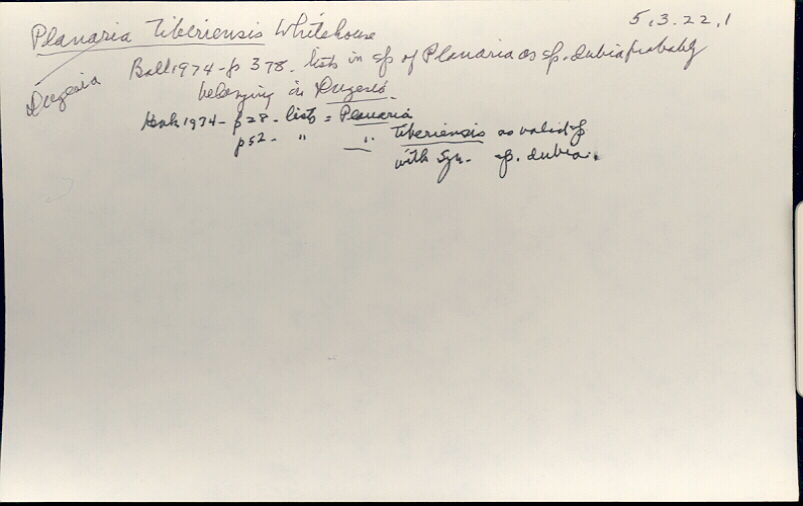 Planaria tiberiensis Whitehouse
5.3.22.1
Dugesia
Ball 1974-p 378. lists in sp of Planaria as sp. dubia probably
belonging in Dugesia.
1974- p28- lists = Planaria
p52- " " tiberiensis as valid sp
with syn. sp. dubia.